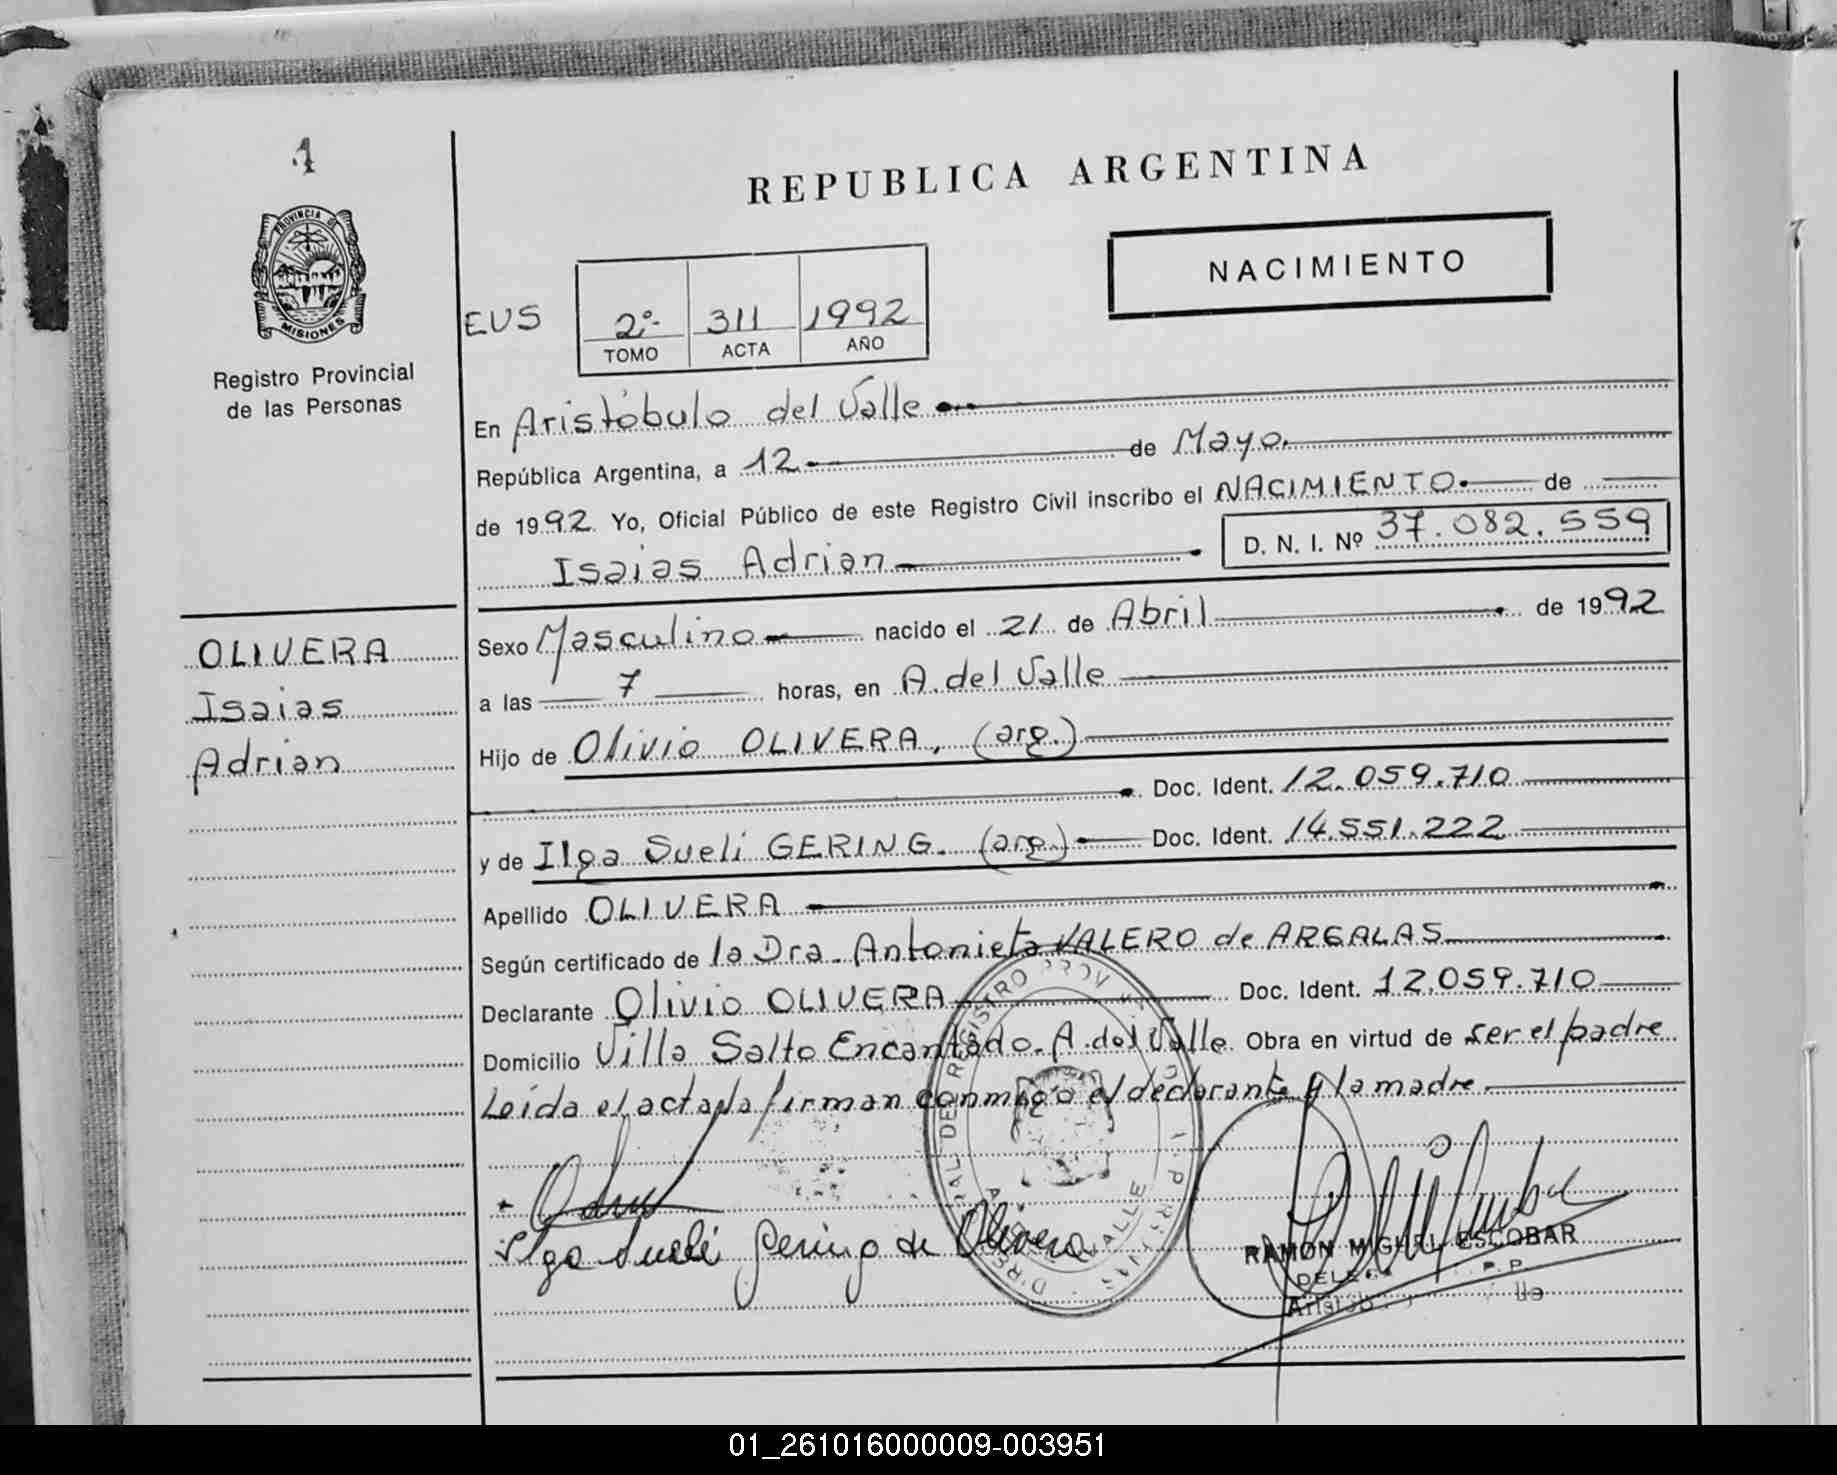 1
REPUBLICA ARGENTINA
NACIMIENTO
PROVINCIA DE
MISIONES
Registro Provincial
de las Personas
EUS
2º 311 1992
TOMO ACTA AÑO
En Aristóbulo del Valle
República Argentina, a 12 de Mayo
de 1992. Yo, Oficial Público de este Registro Civil inscribo el NACIMIENTO de
Isaias Adrian D. N. I. Nº 37.082.559
OLIVERA
Isaias
Adrian
Sexo Masculino nacido el 21 de Abril de 1992
a las 7 horas, en A. del Valle
Hijo de Olivio OLIVERA, (arg.)
Doc. Ident. 12.059.710
y de Ilga Sueli GERING. (arg.) Doc. Ident. 14.551.222
Apellido OLIVERA
Según certificado de la Dra. Antonieta VALERO de ARGALAS
Declarante Olivio OLIVERA Doc. Ident. 12.059.710
Domicilio Villa Salto Encantado. A. del Valle. Obra en virtud de ser el padre
Leída el acta la firman conmigo el declarante y la madre.
Ilga Sueli Gering de Olivera
RAMON MIGUEL ESCOBAR
01_261016000009-003951